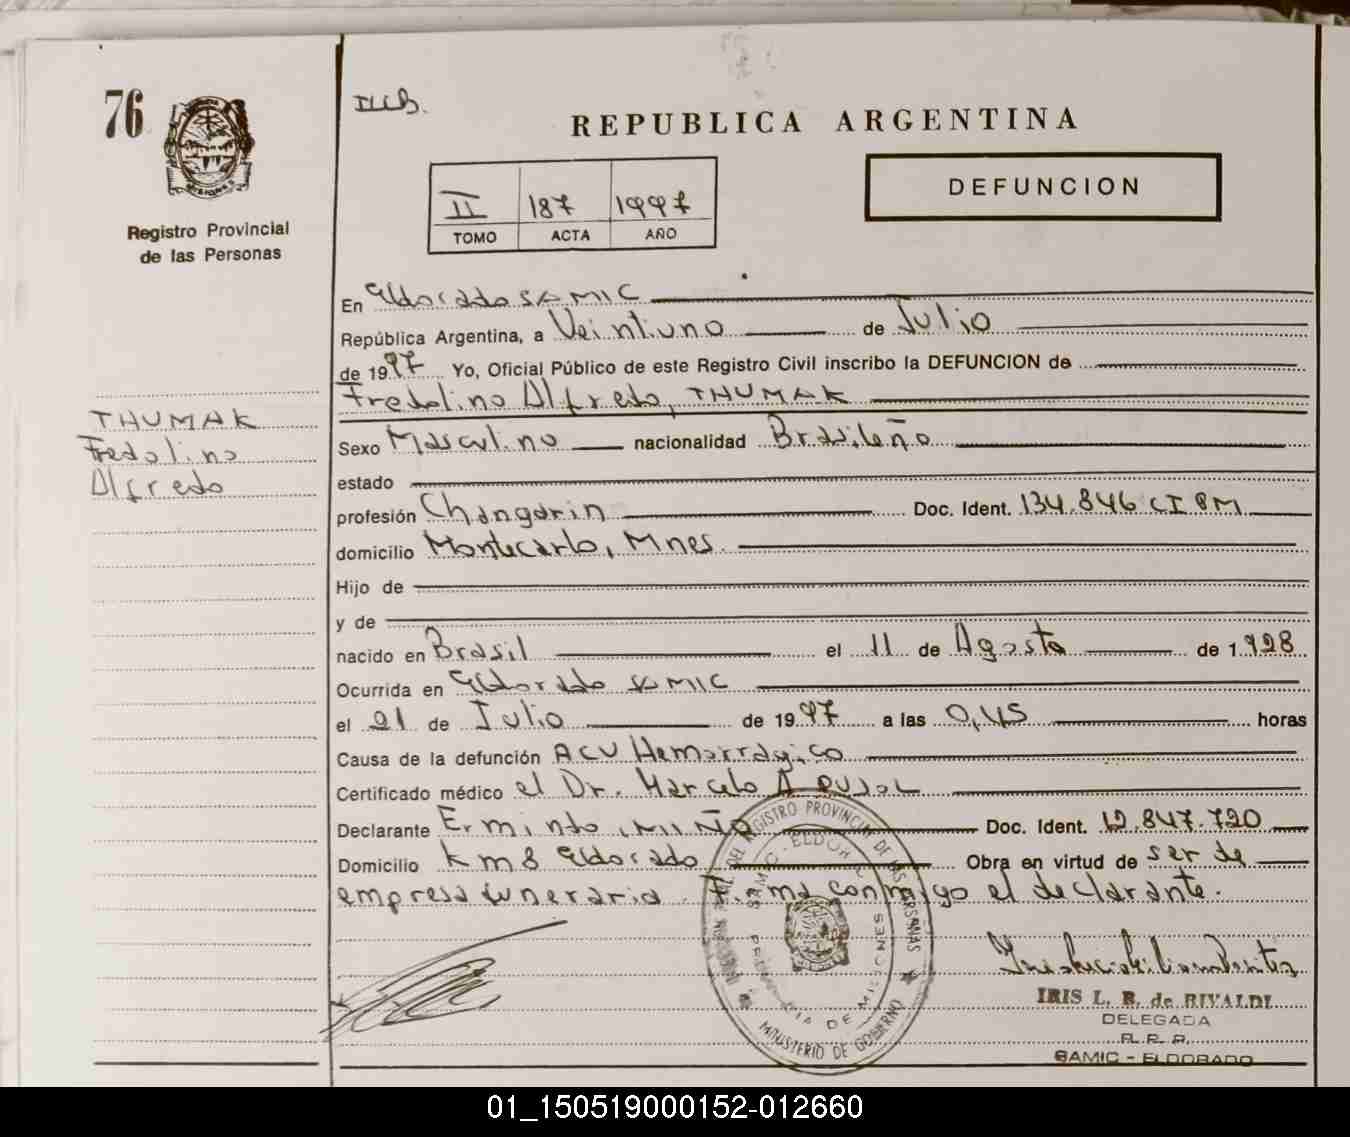 76
Registro Provincial
de las Personas
THUMAK
Fredolino
Alfredo
REPUBLICA ARGENTINA
DEFUNCION
II 187 1997
TOMO ACTA AÑO
En Eldorado SAMIC
República Argentina, a Veintiuno de Julio
de 1997 Yo, Oficial Público de este Registro Civil inscribo la DEFUNCION de
Fredolino Alfredo, THUMAK
Sexo Masculino nacionalidad Brasileño
estado
profesión Changarin Doc. Ident. 134.846 CI PM
domicilio Montecarlo, Mnes.
Hijo de
y de
nacido en Brasil el 11 de Agosto de 1.928
Ocurrida en Eldorado SAMIC
el 21 de Julio de 1997 a las 0,45 horas
Causa de la defunción ACV Hemorragico
Certificado médico el Dr. Marcelo A PUJOL
Declarante Erminto, MIÑO Doc. Ident. 12.847.720
Domicilio Km 8 Eldorado Obra en virtud de ser de
empresa funeraria. Firma conmigo el declarante.
IRIS L. B. de RIVALDI
DELEGADA
R. P. P.
SAMIC - ELDORADO
DEL REGISTRO PROVINCIAL DE LAS PERSONAS
SAMIC - ELDORADO
PROVINCIA DE MISIONES
MINISTERIO DE GOBIERNO
01_150519000152-012660